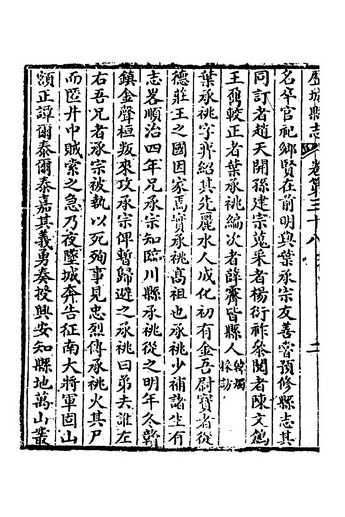 歷城縣志 卷第三十八 二
名卒官祀鄉賢在前明與葉承宗友善嘗預修縣志其
同訂者趙天開孫建宗蒐采者楊衍祚叅閱者陳文鴿
王雋較正者葉承祧編次者薛霽皆縣人
葉承祧字羿紹其先麗水人成化初有金吾尉寶者從
德莊王之國因家焉寶承祧高祖也承祧少補諸生有
志畧順治四年兄承宗知臨川縣承祧從之明年冬贛
鎮金聲桓叛來攻承宗俾暫歸避之承祧曰弟夫誰左
右吾兄者承宗被執以死殉事見忠烈傳承祧火其尸
而匿井中賊索之急乃夜墜城奔告征南大將軍固山
額正譚爾泰爾泰嘉其義勇奏授興安知縣地萬山叢